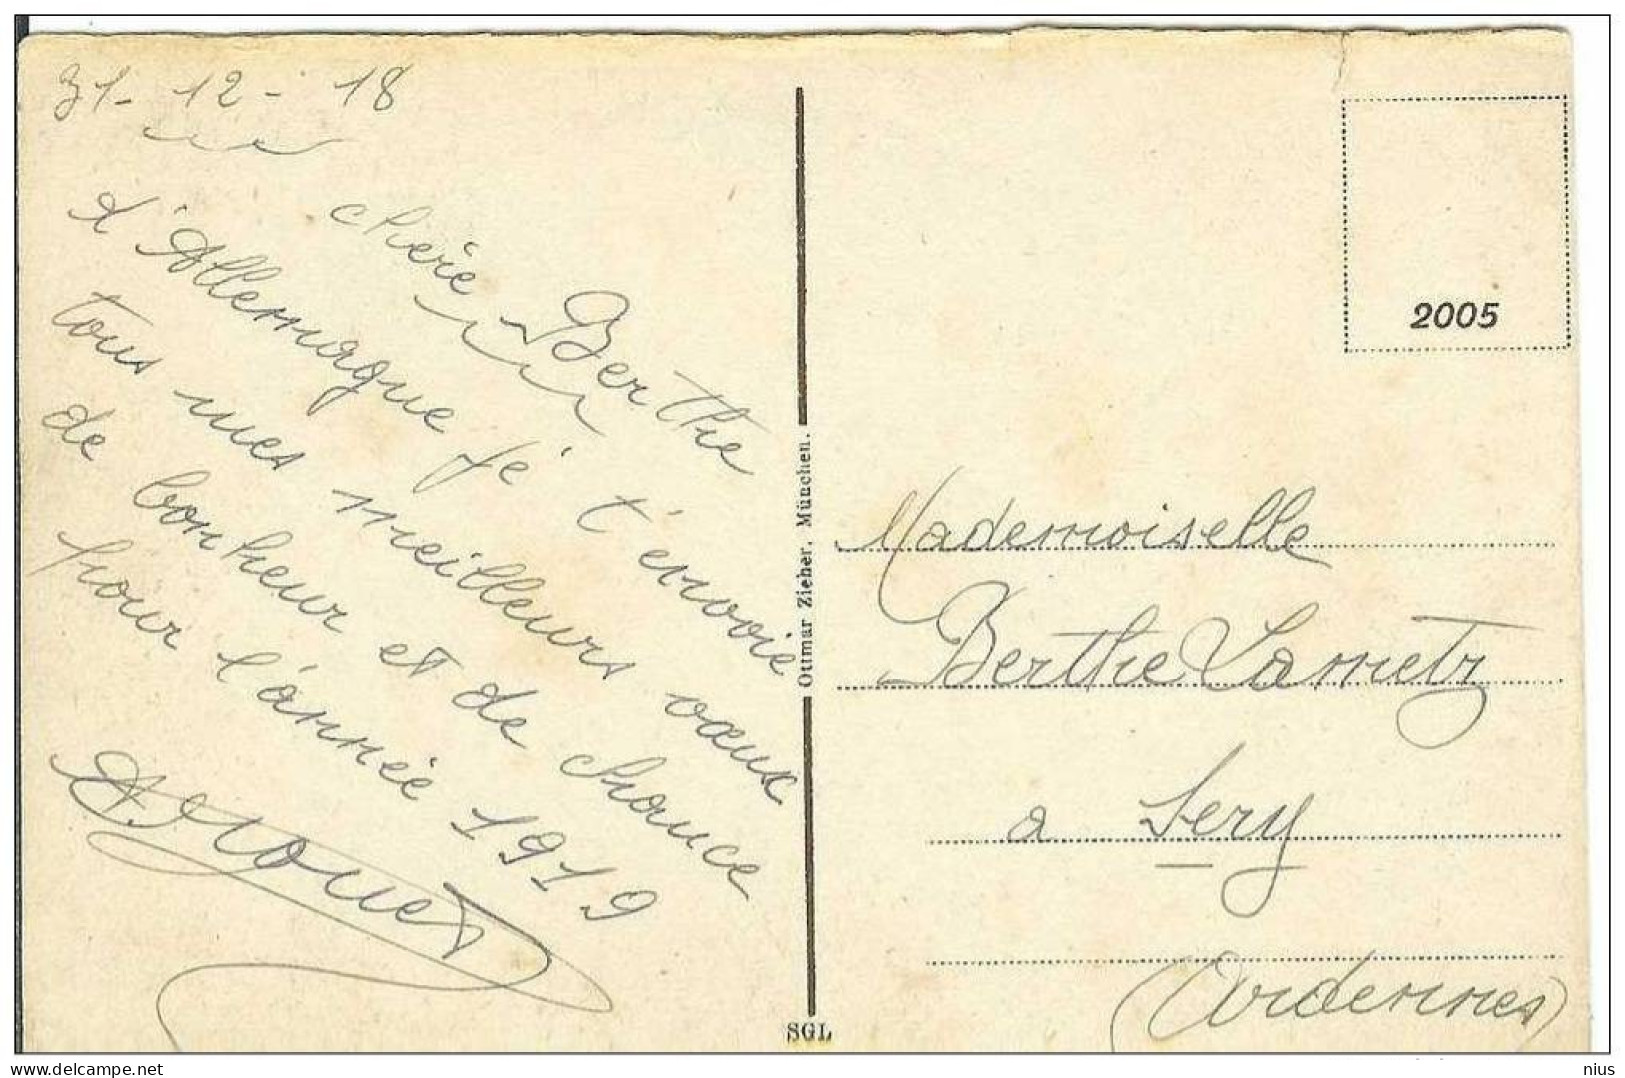 31-12-18
chère Berthe
d'Allemagne je t'envoie
tous mes meilleurs vœux
de bonheur et de chance
pour l'année 1919
Ottmar Zieher, München.
SGL
2005
Mademoiselle
Berthe Lametz
a Sery
(Ardennes)
delcampe.net
nius